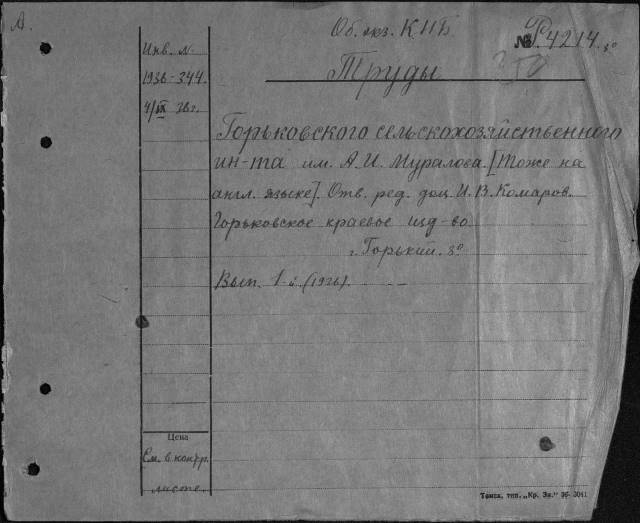 А.
Об. экз. КНБ
№ Р.4214 8°
Инв. №
1936-344.
4/IX 36г.
Труды
Горьковского сельскохозяйственного
ин-та им. А. И. Муралова. [Тоже на
англ. языке]. Отв. ред. доц. И. В. Комаров.
Горьковское краевое изд-во
г. Горький. 8°
Вып. 1-й (1936).
Цена
См. в контр.
листе.
Томск, тип. „Кр. Зн.“ 36- 3041